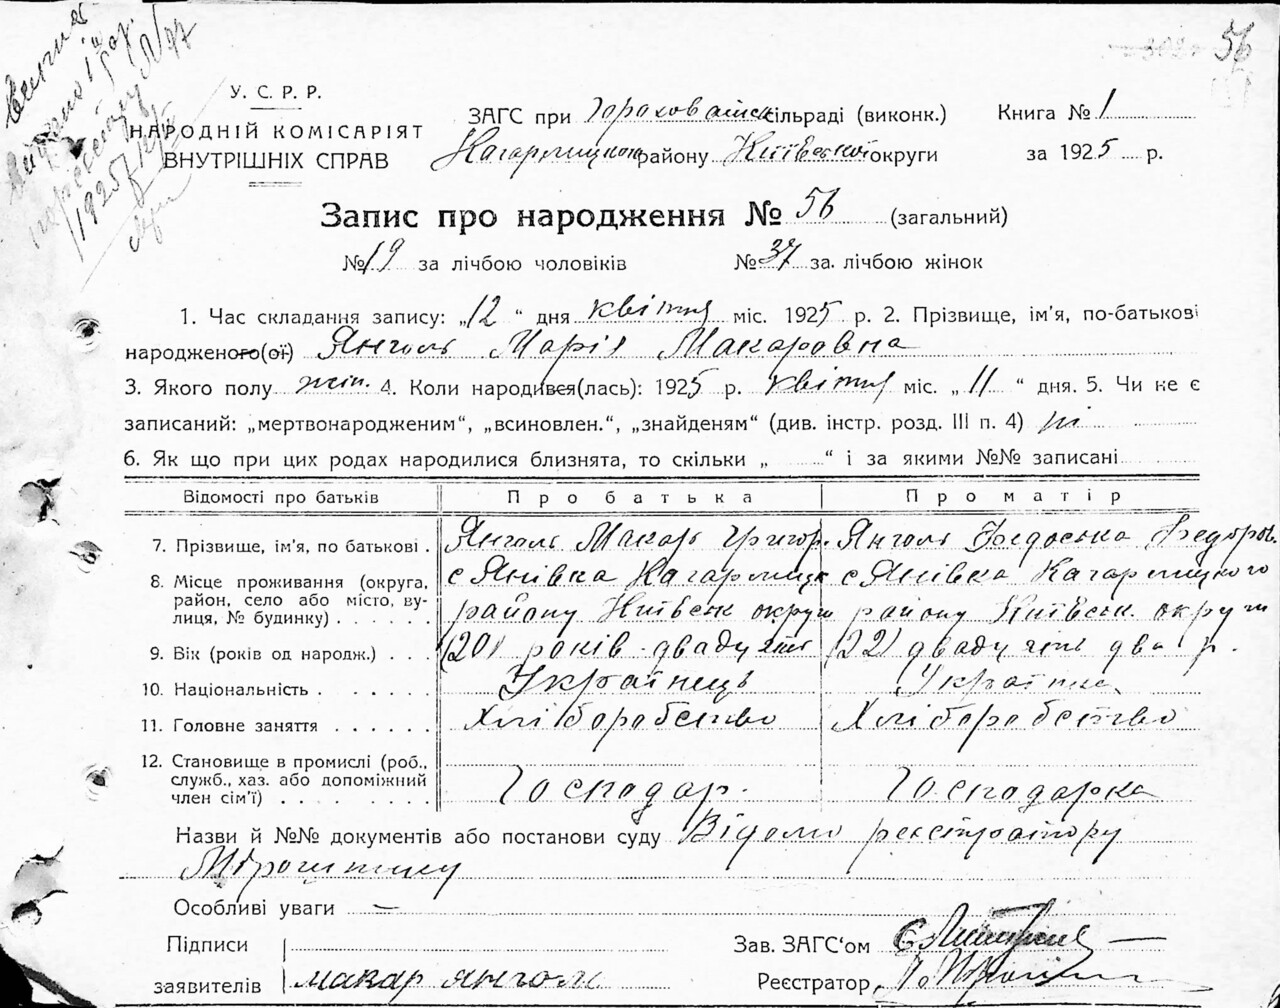 56
У. С. Р. Р.
НАРОДНІЙ КОМІСАРІЯТ
ВНУТРІШНІХ СПРАВ
ЗАГС при сільраді (виконк.) Книга № 1
Кагарлицьког району Київської округи за 1925 р.
Запис про народження № 56 (загальний)
№ 19 за лічбою чоловіків № 37 за лічбою жінок
1. Час складання запису: „12“ дня квітня міс. 1925 р. 2. Прізвище, ім'я, по-батькові
народженого(ої) Янголь Марія Макаровна
3. Якого полу жін. 4. Коли народився(лась): 1925 р. квітня міс. „11“ дня. 5. Чи не є
записаний: „мертвонародженим“, „всиновлен.“, „знайденям“ (див. інстр. розд. III п. 4) ні
6. Як що при цих родах народилися близнята, то скільки „ “ і за якими №№ записані
Відомості про батьків Про батька Про матір
7. Прізвище, ім'я, по батькові . Янголь Макарь Григор. Янголь Федоська Федоров.
8. Місце проживання (округа, район, село або місто, вулиця, № будинку) . . . . . . с Янівка Кагарлицк району Київськ округи с Янівка Кагарлицкого району Київськ. округи
9. Вік (років од народж.) . . . (20) років двадцять (22) двадцять два р.
10. Національність . . . . . . Українець Українка
11. Головне заняття . . . . . . Хліборобство Хліборобство
12. Становище в промислі (роб., служб., хаз. або допоміжний член сім'ї) . . . . . . . . Господар. Господарка
Назви й №№ документів або постанови суду Відомо реєстратору
Особливі уваги —
Підписи Зав. ЗАГС'ом
заявителів макар янголь Реєстратор